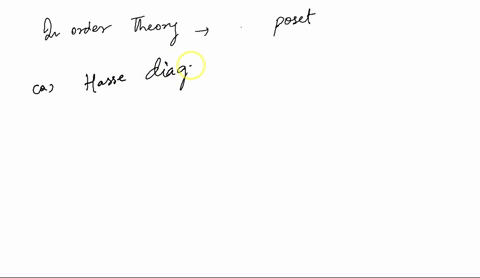 In order Theory → poset
(a) Hasse diag.